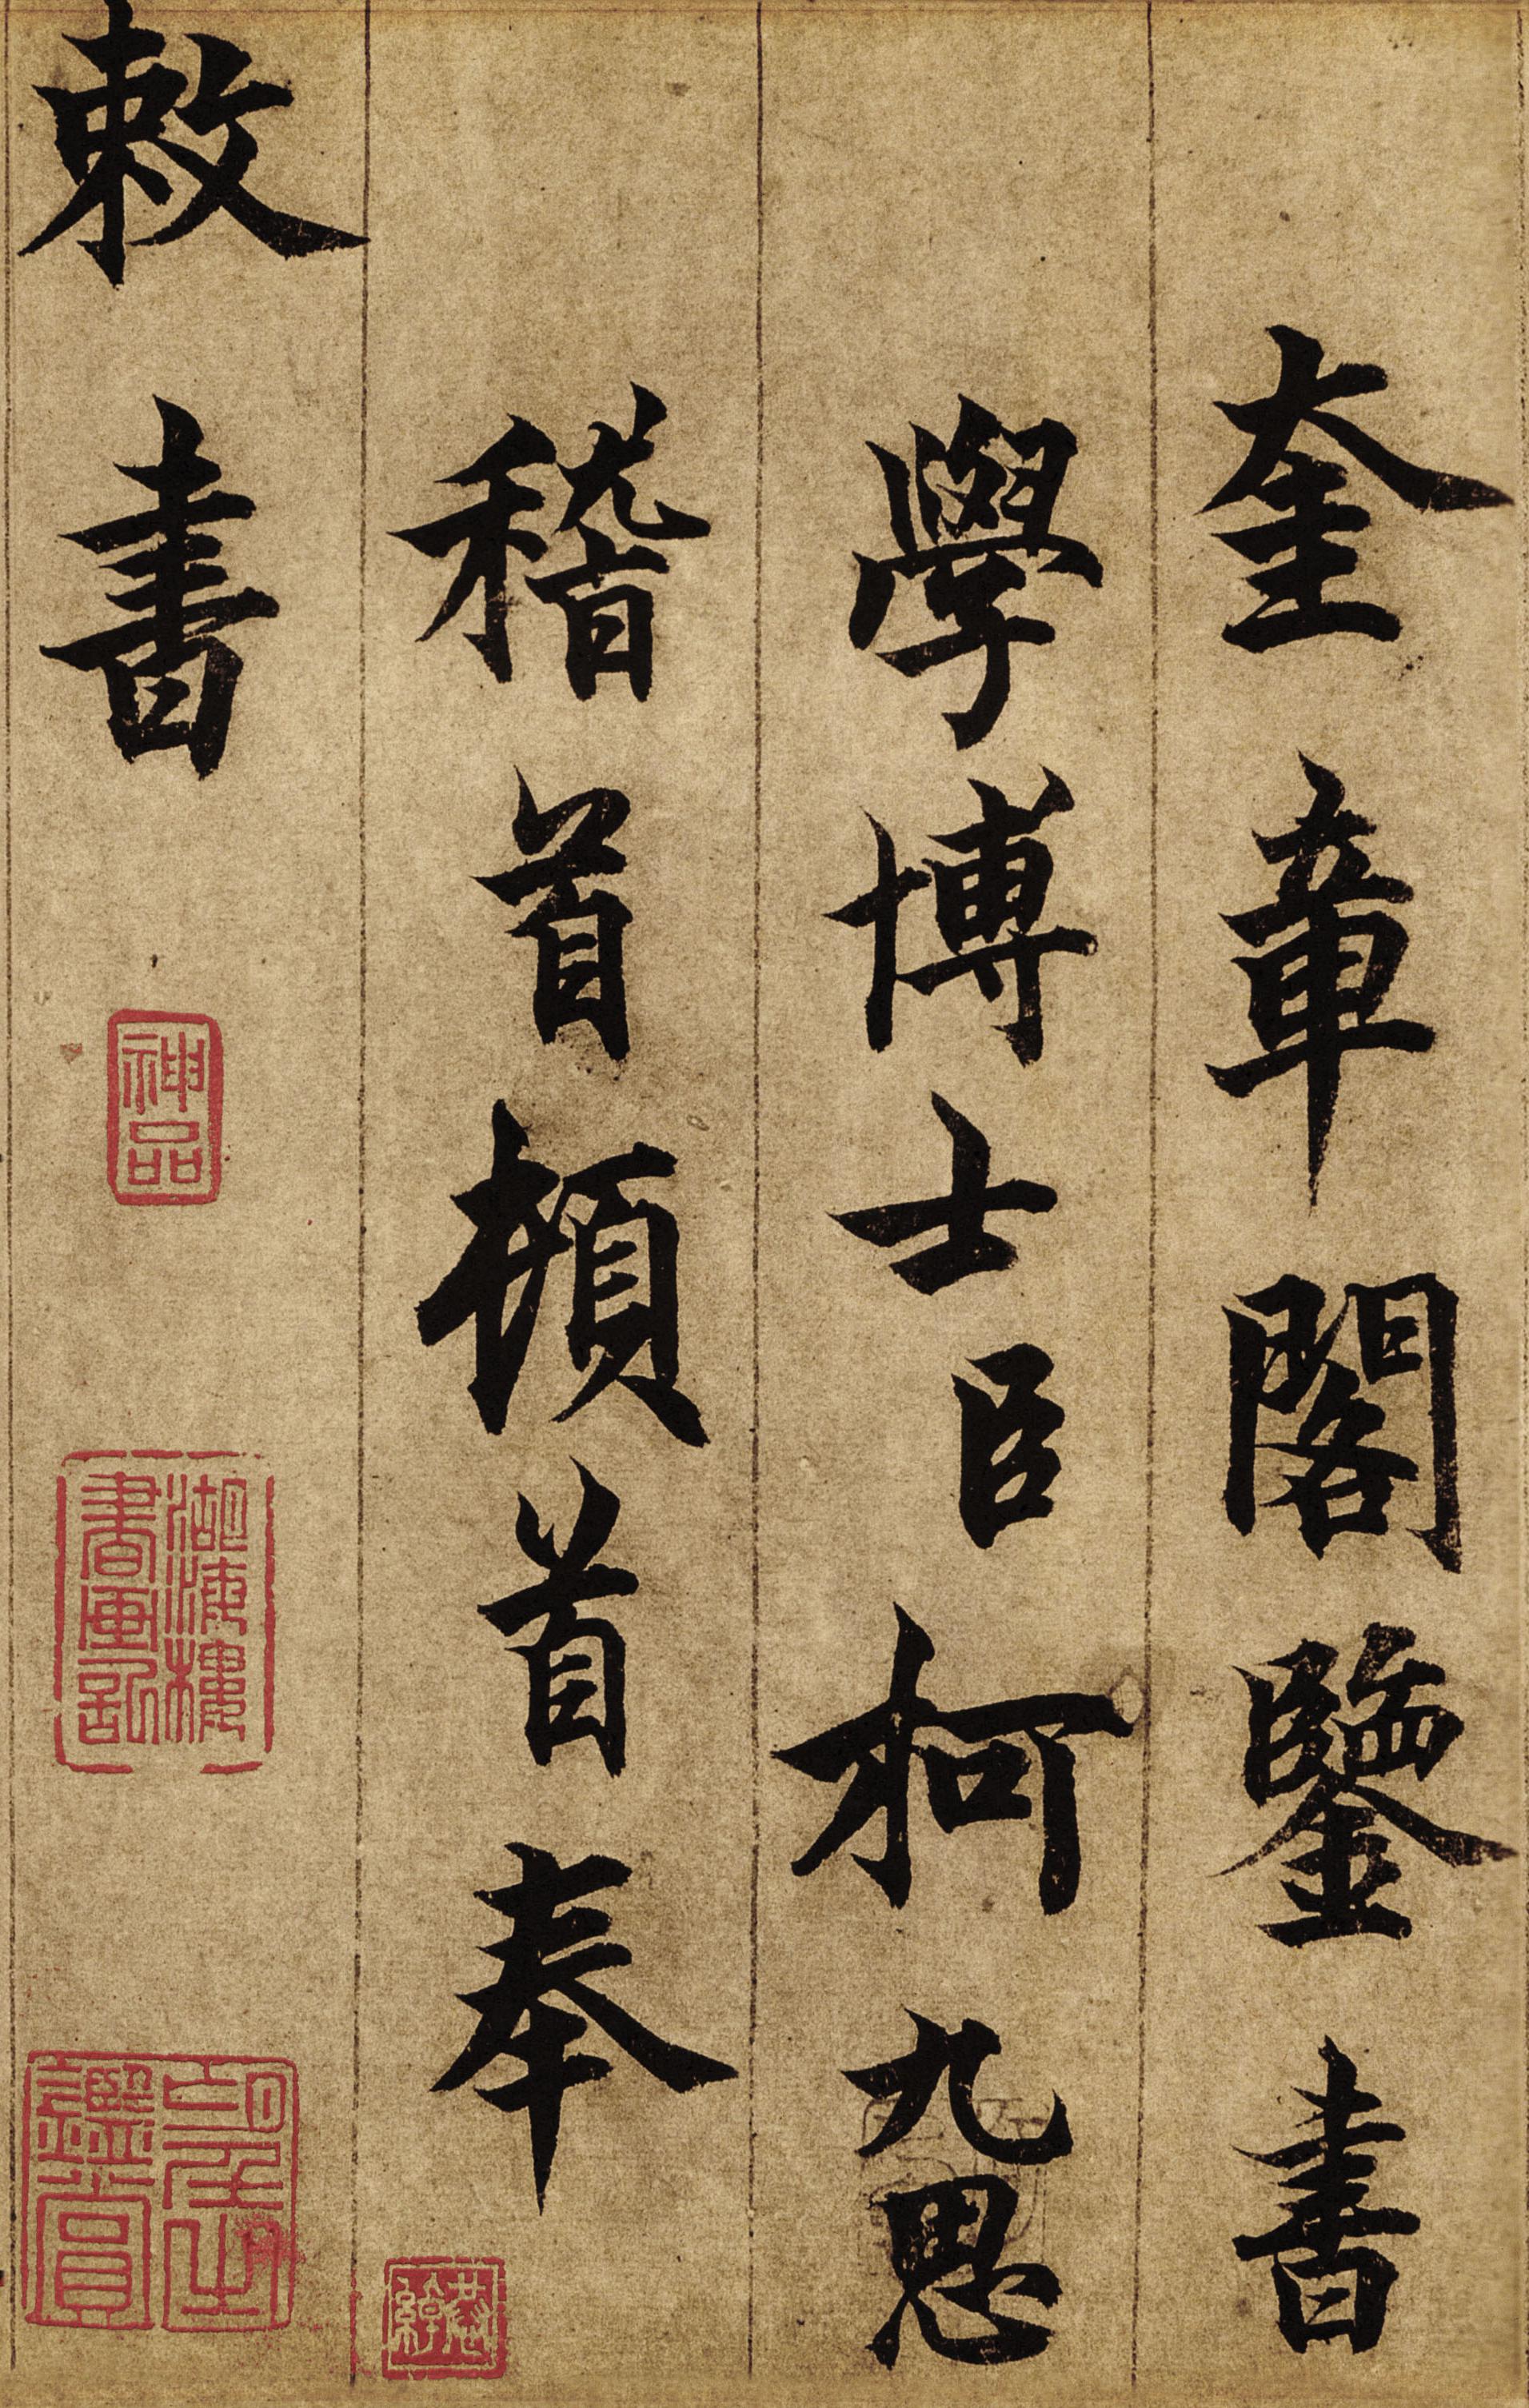 奎章閣鑒書
學博士臣柯九思
稽首頓首奉
敕書
神品
湖海樓
書畫記
鑑賞